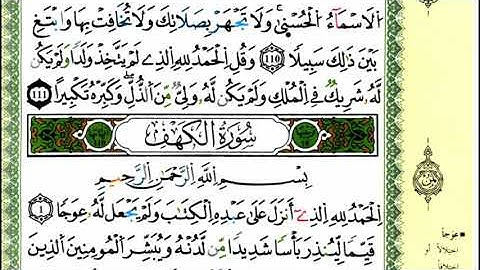 اَ۬لَاسْمَآءُ اُ۬لْحُسْن۪يٰۖ وَلَا تَجْهَرْ بِصَلَاتِكَ وَلَا تُخَافِتْ بِهَا وَابْتَغِ
بَيْنَ ذَٰلِكَ سَبِيلًاۖ 110 وَقُلِ اِ۬لْحَمْدُ لِلهِ اِ۬لذِے لَمْ يَتَّخِذْ وَلَدًا وَلَمْ يَكُن
لَّهُۥ شَرِيكٌ فِے اِ۬لْمُلْكِ وَلَمْ يَكُن لَّهُۥ وَلِيٌّ مِّنَ اَ۬لذُّلِّۖ وَكَبِّرْهُ تَكْبِيرًاۖ 111
سُورَةُ الكَهْفِ
بِسْمِ اِ۬للَّهِ اِ۬لرَّحْمَٰنِ اِ۬لرَّحِيمِ
اِ۬لْحَمْدُ لِلهِ اِ۬لذِےٓ أَنزَلَ عَلَىٰ عَبْدِهِ اِ۬لْكِتَٰبَ وَلَمْ يَجْعَل لَّهُۥ عِوَجًاۖ 1
قَيِّمًا لِّيُنذِرَ بَأْسًا شَدِيدًا مِّن لَّدُنْهُ وَيُبَشِّرَ اَ۬لْمُومِنِينَ اَ۬لذِينَ
عِوَجًا
اختلالًا أو
اختلافًا